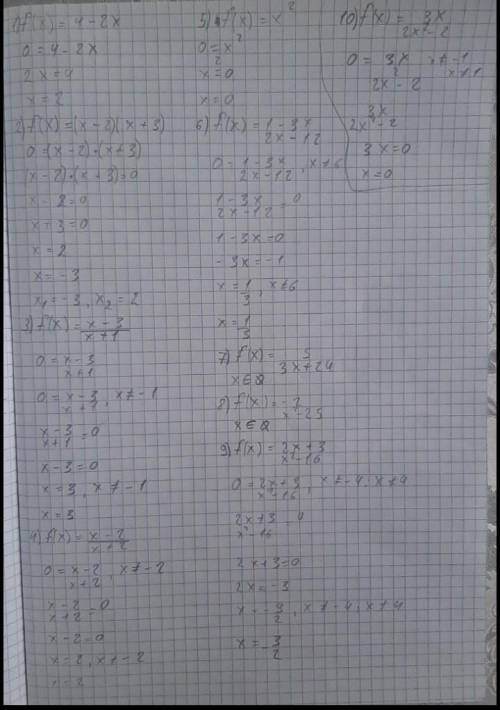 1) f(x) = 4-2x
0 = 4-2x
2x = 4
x = 2
2) f(x) = (x-2)(x+3)
0 = (x-2)·(x+3)
(x-2)·(x+3)=0
x-2=0
x+3=0
x=2
x=-3
x₁=-3, x₂=2
3) f(x) = x-3/x+1
0 = x-3/x+1
0 = x-3/x+1, x≠-1
x-3/x+1 = 0
x-3=0
x=3, x≠-1
x=3
4) f(x) = x-2/x+2
0 = x-2/x+2, x≠-2
x-2/x+2 = 0
x-2=0
x=2, x≠-2
x=2
5) f(x) = x²
0 = x²
x²=0
x=0
6) f(x) = 1-3x/2x-12
0 = 1-3x/2x-12, x≠6
1-3x/2x-12 = 0
1-3x=0
-3x=-1
x=1/3, x≠6
x=1/3
7) f(x) = 5/3x+24
x∈Q
8) f(x) = -7/x²-25
x∈Q
9) f(x) = 2x+3/x²-16
0 = 2x+3/x²-16, x≠-4, x≠4
2x+3/x²-16
2x+3=0
2x=-3
x=-3/2, x≠-4, x≠4
x=-3/2
10) f(x) = 3x/2x²-2
0 = 3x/2x²-2, x≠-1 x≠1
3x/2x²-2
3x=0
x=0